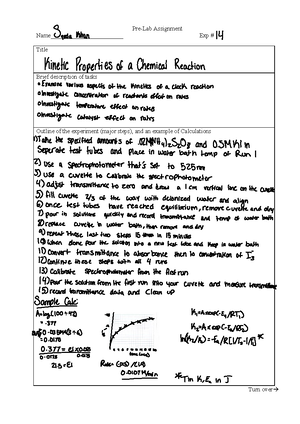 Pre-Lab Assignment
Name Syeda Khan Exp # 14
Title
Kinetic Properties of a Chemical Reaction
Brief description of tasks
•Examine various aspects of the kinetics of a clock reaction
•Investigate concentration of reactants effect on rates
•Investigate temperature effect on rates
•Investigate catalyst effect on rates
Outline of the experiment (major steps), and an example of Calculations
1) Take the specified amounts of .02M (NH4)2S2O8 and 0.5M KI in
Separate test tubes and Place in water bath temp of Run 1
2) Use a spectrophotometer that's set to 525nm
3) use a cuvette to calibrate the spectrophotometer
4) adjust transmittance to zero and draw a 1 cm vertical line on the cuvette
5) fill cuvette 2/3 of the way with deionized water and align
6) once test tubes have reached equilibrium, remove cuvette and dry
7) pour in solutions quickly and record transmittance and temp of water bath
8) replace cuvette in water bath, then remove and dry
9) repeat these last two steps
10) When done pour the solution into a new test tube and keep in water bath
11) Convert transmittance to absorbance then to concentration of I3
12) continue these steps with all 4 runs
13) calibrate spectrophotometer from the first run
14) Pour the solution from the first run into your cuvette and measure transmittance
15) record transmittance data and clean up
Sample Calc:
A=log(100÷42)
= .377
= 0.0178
0.377 =
21.3 = E1
Rate=
0.0107 M/min
K1=Aexp(-Ea/RT1)
K2=Aexp(-Ea/RT2)
ln(K2/K1)=-Ea/R[1/T2-1/T1]*
*T in K, Ea in J
Turn over→